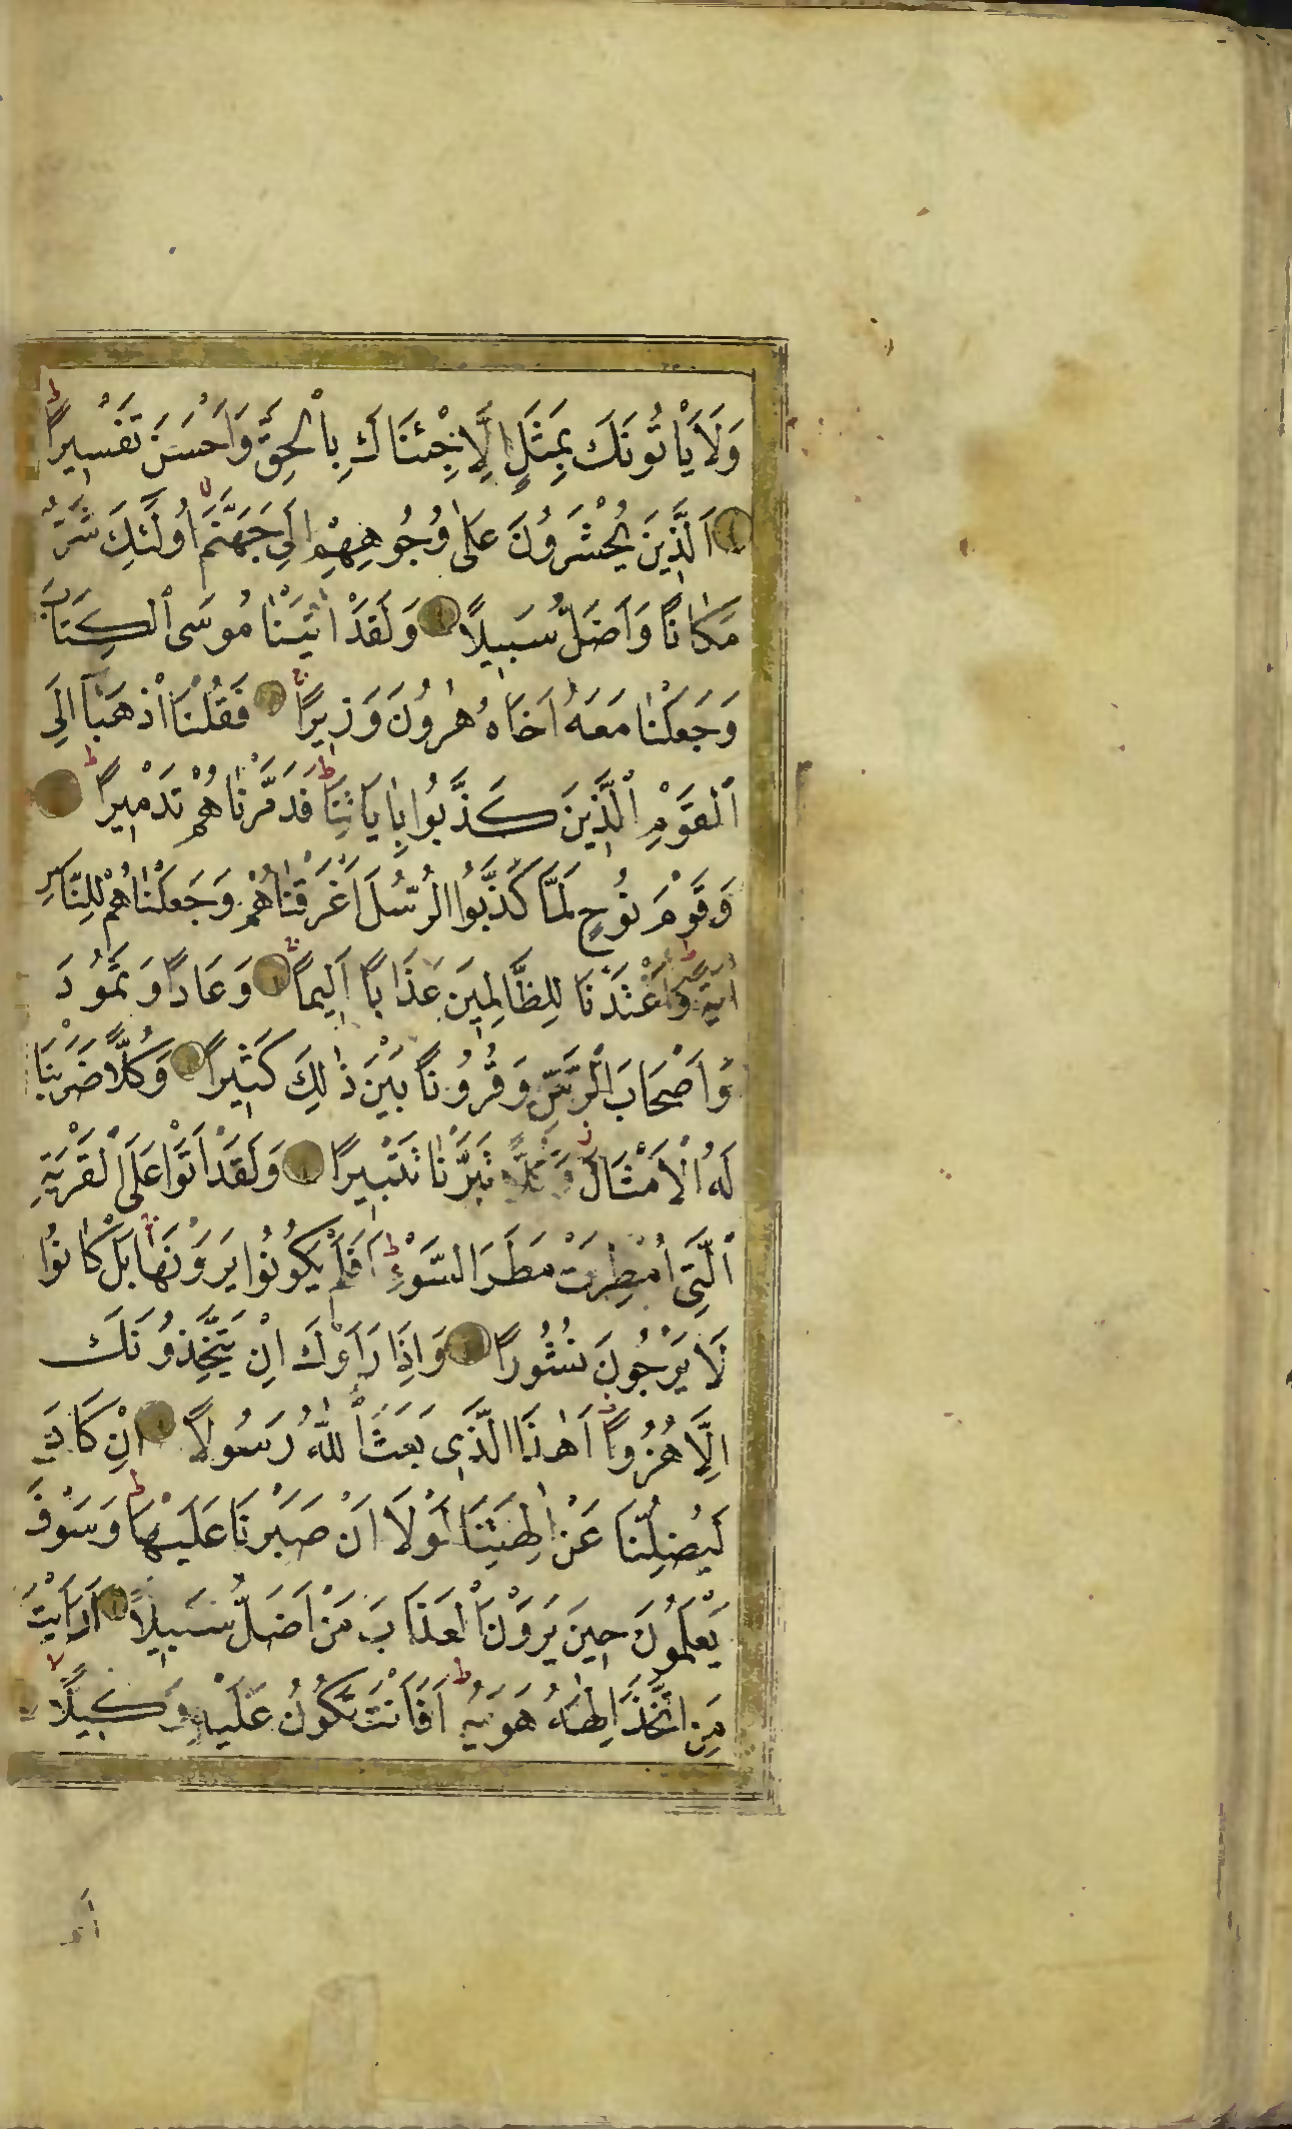 وَلَا يَأْتُونَكَ بِمَثَلٍ اِلَّا جِئْنَاكَ بِالْحَقِّ وَاَحْسَنَ تَفْسِيرًا ط
اَلَّذِينَ يُحْشَرُونَ عَلٰى وُجُوهِهِمْ اِلٰى جَهَنَّمَ لا اُولٰئِكَ شَرٌّ
مَكَانًا وَاَضَلُّ سَبِيلًا وَلَقَدْ اٰتَيْنَا مُوسَى الْكِتَابَ
وَجَعَلْنَا مَعَهُ اَخَاهُ هٰرُونَ وَزِيرًا ج فَقُلْنَا اذْهَبَا اِلَى
الْقَوْمِ الَّذِينَ كَذَّبُوا بِاٰيَاتِنَا ط فَدَمَّرْنَاهُمْ تَدْمِيرًا ط
وَقَوْمَ نُوحٍ لَمَّا كَذَّبُوا الرُّسُلَ اَغْرَقْنَاهُمْ وَجَعَلْنَاهُمْ لِلنَّاسِ
اٰيَةً ط وَاَعْتَدْنَا لِلظَّالِمِينَ عَذَابًا اَلِيمًا ج وَعَادًا وَثَمُودَ
وَاَصْحَابَ الرَّسِّ وَقُرُونًا بَيْنَ ذٰلِكَ كَثِيرًا وَكُلًّا ضَرَبْنَا
لَهُ الْاَمْثَالَ ز وَكُلًّا تَبَّرْنَا تَتْبِيرًا وَلَقَدْ اَتَوْا عَلَى الْقَرْيَةِ
الَّتِى اُمْطِرَتْ مَطَرَ السَّوْءِ ط اَفَلَمْ يَكُونُوا يَرَوْنَهَا ج بَلْ كَانُوا
لَا يَرْجُونَ نُشُورًا وَاِذَا رَاَوْكَ اِنْ يَتَّخِذُونَكَ
اِلَّا هُزُوًا اَهٰذَا الَّذِى بَعَثَ اللّٰهُ رَسُولًا اِنْ كَادَ
لَيُضِلُّنَا عَنْ اٰلِهَتِنَا لَوْلَا اَنْ صَبَرْنَا عَلَيْهَا ط وَسَوْفَ
يَعْلَمُونَ حِينَ يَرَوْنَ الْعَذَابَ مَنْ اَضَلُّ سَبِيلًا اَرَاَيْتَ
مَنِ اتَّخَذَ اِلٰهَهُ هَوٰيهُ ط اَفَاَنْتَ تَكُونُ عَلَيْهِ وَكِيلًا لا
اَمْ